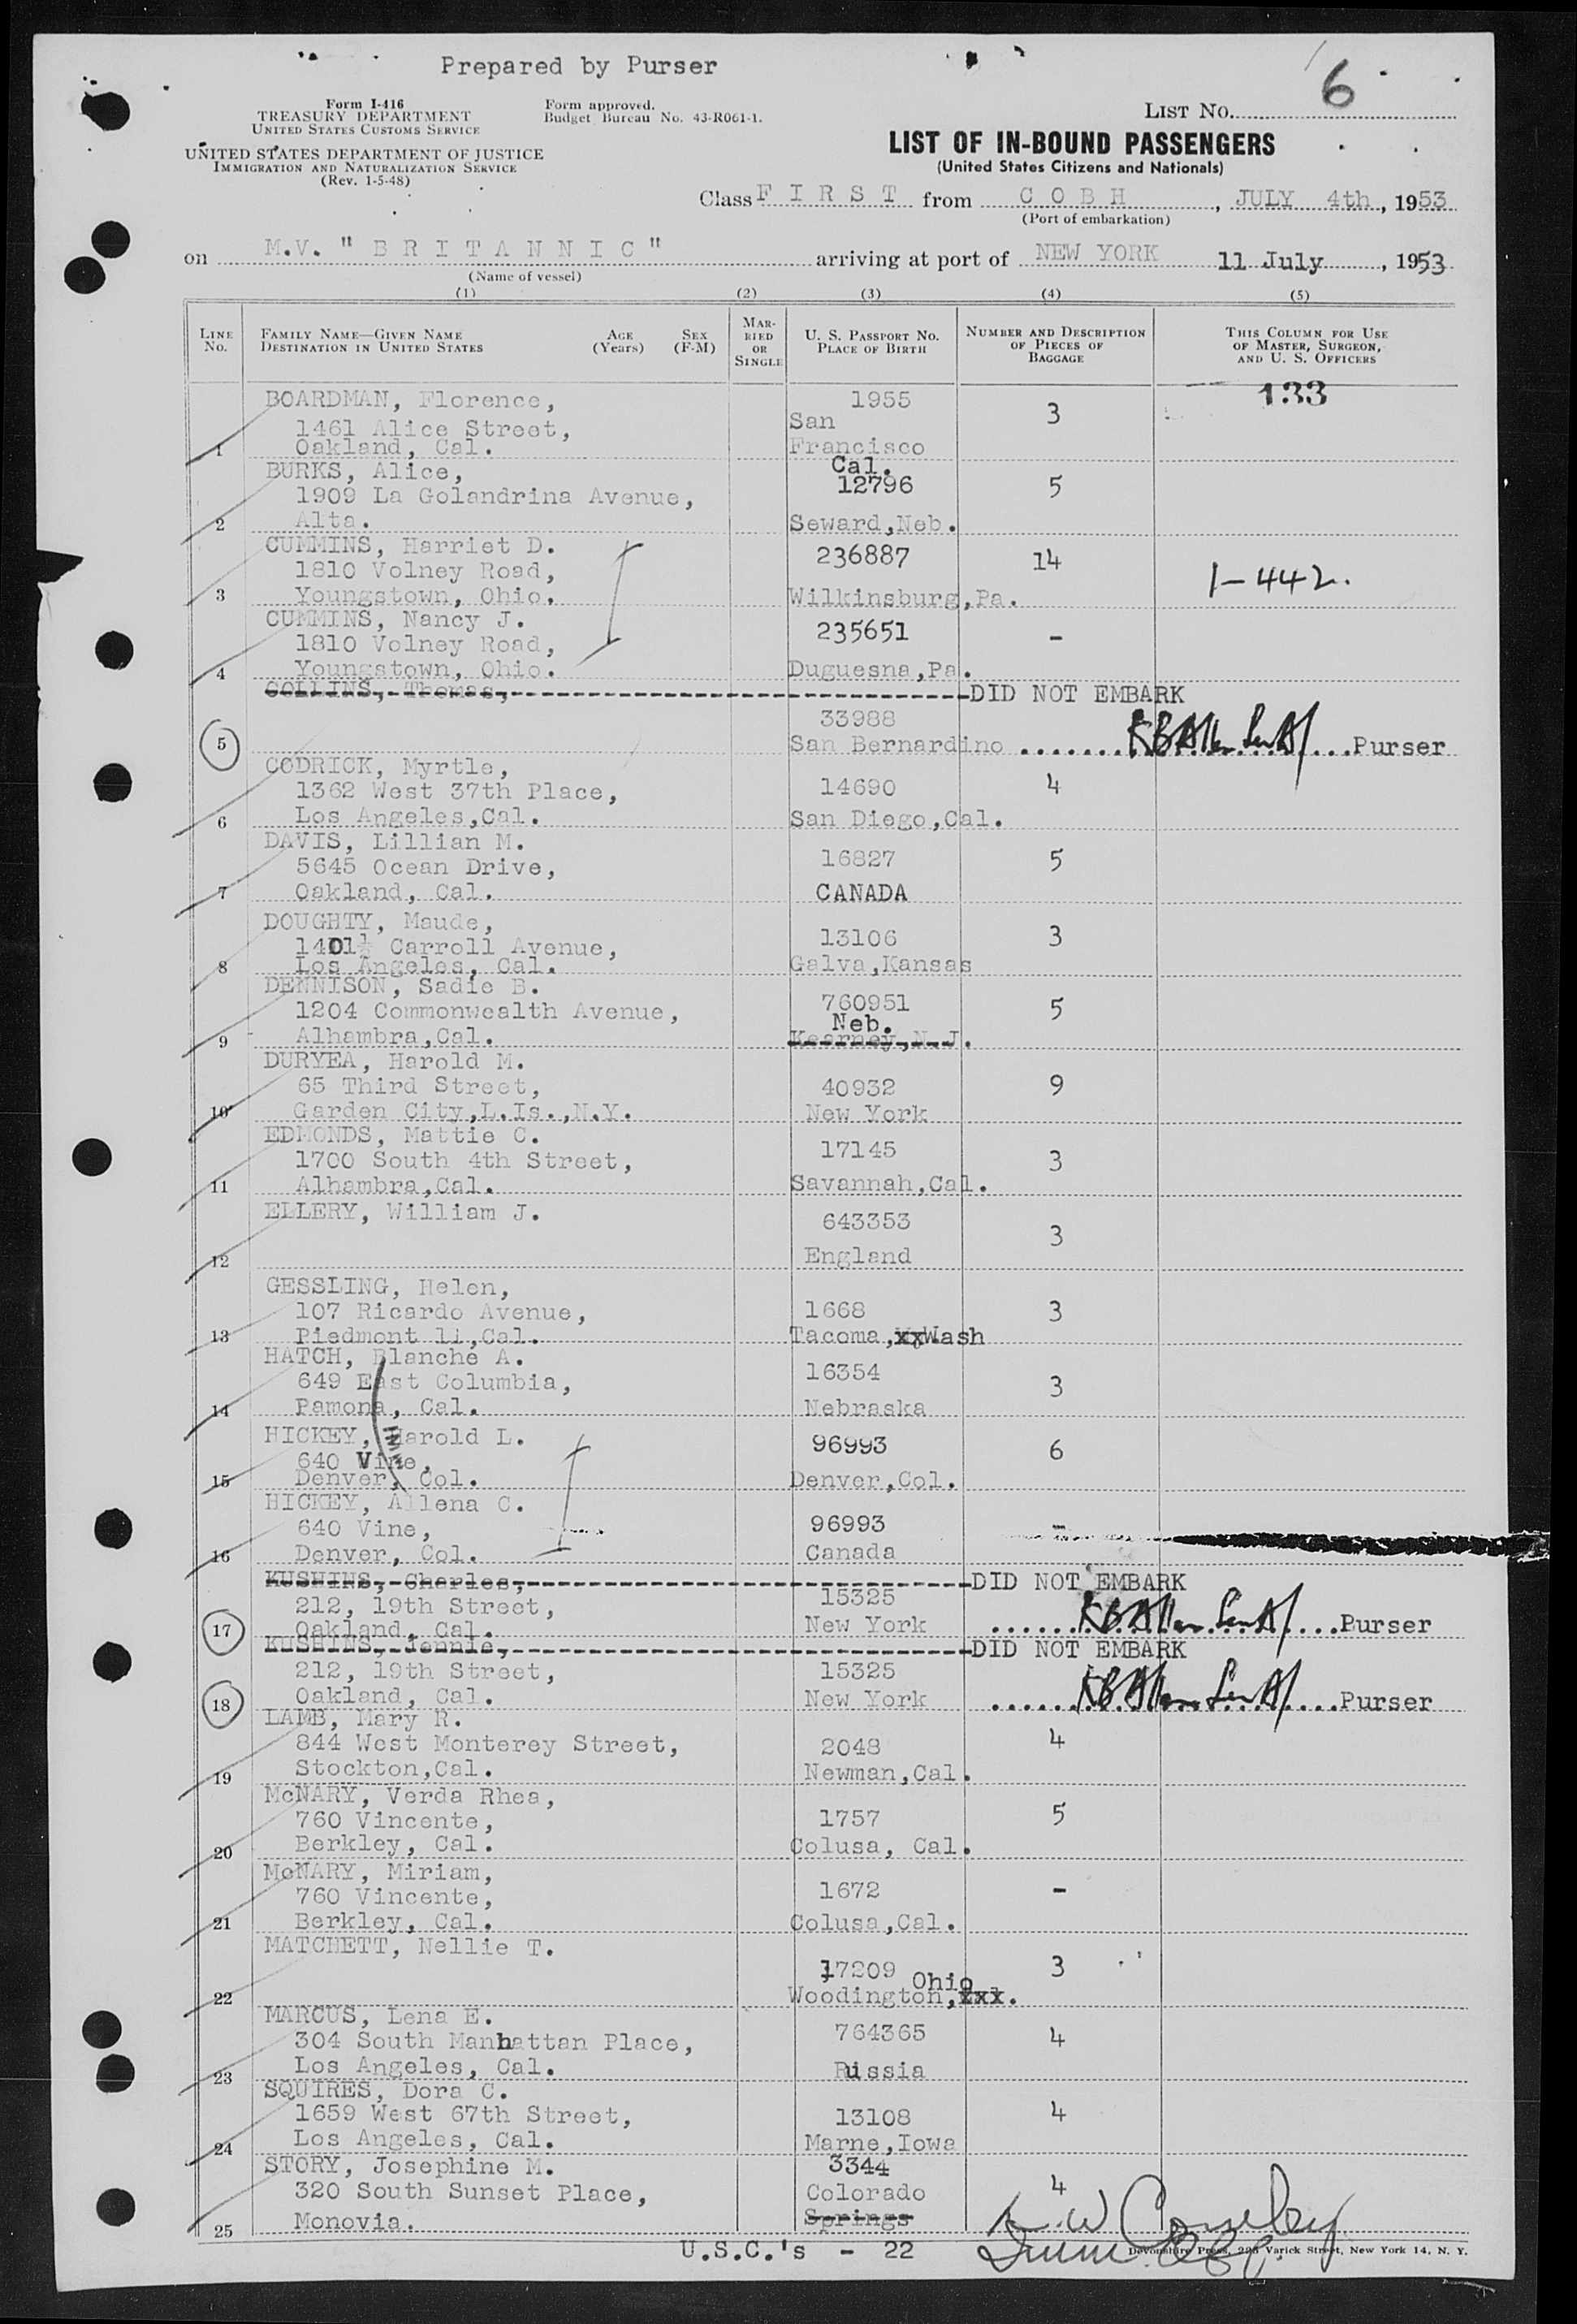 Prepared by Purser
6
Form I-416
TREASURY DEPARTMENT
UNITED STATES CUSTOMS SERVICE
Form approved.
Budget Bureau No. 43-R061-1.
LIST NO.
UNITED STATES DEPARTMENT OF JUSTICE
IMMIGRATION AND NATURALIZATION SERVICE
(Rev. 1-5-48)
LIST OF IN-BOUND PASSENGERS
(United States Citizens and Nationals)
Class F I R S T from C O B H, JULY 4th, 1953
(Port of embarkation)
on M.V. "B R I T A N N I C" arriving at port of NEW YORK 11 July, 1953
(Name of vessel)
(1) (2) (3) (4) (5)
LINE NO.
FAMILY NAME—GIVEN NAME
DESTINATION IN UNITED STATES
AGE (Years)
SEX (F-M)
MARRIED OR SINGLE
U. S. PASSPORT NO.
PLACE OF BIRTH
NUMBER AND DESCRIPTION OF PIECES OF BAGGAGE
THIS COLUMN FOR USE OF MASTER, SURGEON, AND U. S. OFFICERS
133
BOARDMAN, Florence, 1955 3
1461 Alice Street, San
1 Oakland, Cal. Francisco
Cal.
BURKS, Alice, 12796 5
1909 La Golandrina Avenue,
2 Alta. Seward,Neb.
CUMMINS, Harriet D. 236887 14
1810 Volney Road, 1-442.
3 Youngstown, Ohio. Wilkinsburg,Pa.
CUMMINS, Nancy J. 235651 -
1810 Volney Road,
4 Youngstown, Ohio. Duguesna,Pa.
COLLINS, Thomas, DID NOT EMBARK
33988
5 San Bernardino Purser
CODRICK, Myrtle,
1362 West 37th Place, 14690 4
6 Los Angeles,Cal. San Diego,Cal.
DAVIS, Lillian M.
5645 Ocean Drive, 16827 5
7 Oakland, Cal. CANADA
DOUGHTY, Maude,
1401½ Carroll Avenue, 13106 3
8 Los Angeles, Cal. Galva,Kansas
DENNISON, Sadie B.
1204 Commonwealth Avenue, 760951 5
Neb.
9 Alhambra,Cal. Kearney,N.J.
DURYEA, Harold M.
65 Third Street, 40932 9
10 Garden City,L.Is.,N.Y. New York
EDMONDS, Mattie C.
1700 South 4th Street, 17145 3
11 Alhambra,Cal. Savannah,Cal.
ELLERY, William J. 643353 3
12 England
GESSLING, Helen,
107 Ricardo Avenue, 1668 3
13 Piedmont 11,Cal. Tacoma,xxWash
HATCH, Blanche A.
649 East Columbia, 16354 3
14 Pamona, Cal. Nebraska
HICKEY, Harold L. 96993 6
640 Vine,
15 Denver, Col. Denver,Col.
HICKEY, Allena C.
640 Vine, 96993 -
16 Denver, Col. Canada
KUSHINS, Charles, DID NOT EMBARK
212, 19th Street, 15325
17 Oakland, Cal. New York Purser
KUSHINS, Jennie, DID NOT EMBARK
212, 19th Street, 15325
18 Oakland, Cal. New York Purser
LAMB, Mary R.
844 West Monterey Street, 2048 4
19 Stockton,Cal. Newman,Cal.
McNARY, Verda Rhea,
760 Vincente, 1757 5
20 Berkley, Cal. Colusa, Cal.
McNARY, Miriam,
760 Vincente, 1672 -
21 Berkley, Cal. Colusa,Cal.
MATCHETT, Nellie T.
17209 3
Ohio
22 Woodington,xxx.
MARCUS, Lena E.
304 South Manhattan Place, 764365 4
23 Los Angeles, Cal. Russia
SQUIRES, Dora C.
1659 West 67th Street, 13108 4
24 Los Angeles, Cal. Marne,Iowa
STORY, Josephine M. 3344
320 South Sunset Place, Colorado 4
25 Monovia. Springs
U.S.C.'s - 22
Devonshire Press, 225 Varick Street, New York 14, N. Y.